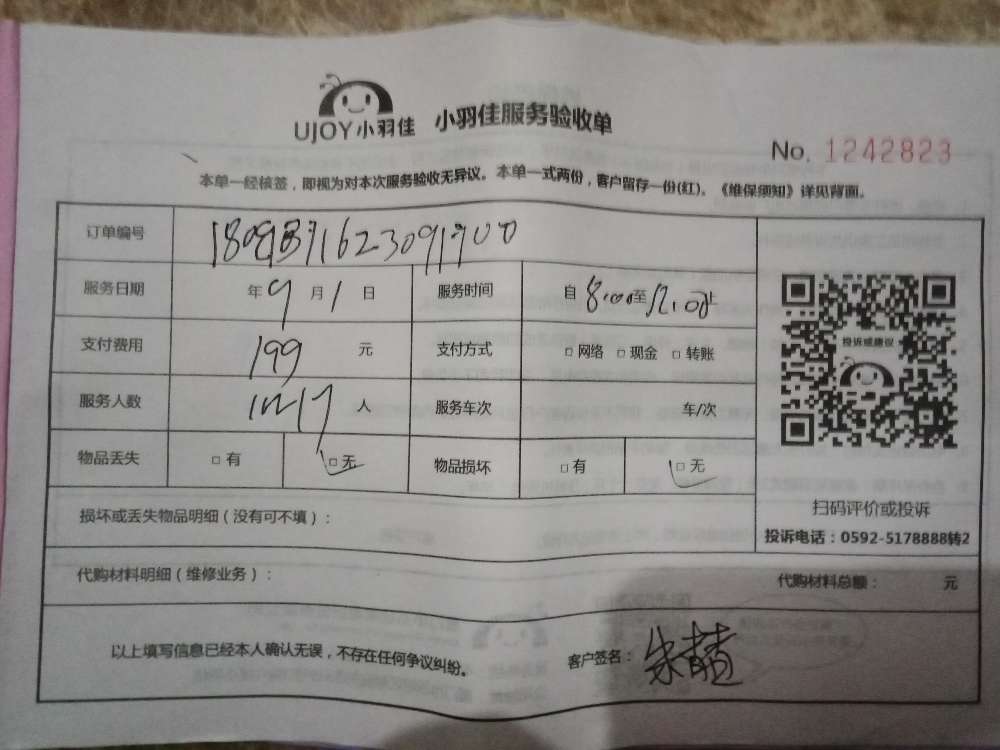 UJOY小羽佳 小羽佳服务验收单
No. 1242823
本单一经核签，即视为对本次服务验收无异议。本单一式两份，客户留存一份(红)。《维保须知》详见背面。
订单编号
服务日期 年 9 月 1 日 服务时间 自 8:00 至 12:00 止
支付费用 199 元 支付方式 □ 网络 □ 现金 □ 转账
服务人数 人 服务车次 车/次
物品丢失 □ 有 □ 无 物品损坏 □ 有 □ 无
投诉或建议
扫码评价或投诉
投诉电话：0592-5178888转2
损坏或丢失物品明细（没有可不填）：
代购材料明细（维修业务）： 代购材料总额： 元
以上填写信息已经本人确认无误，不存在任何争议纠纷。 客户签名：